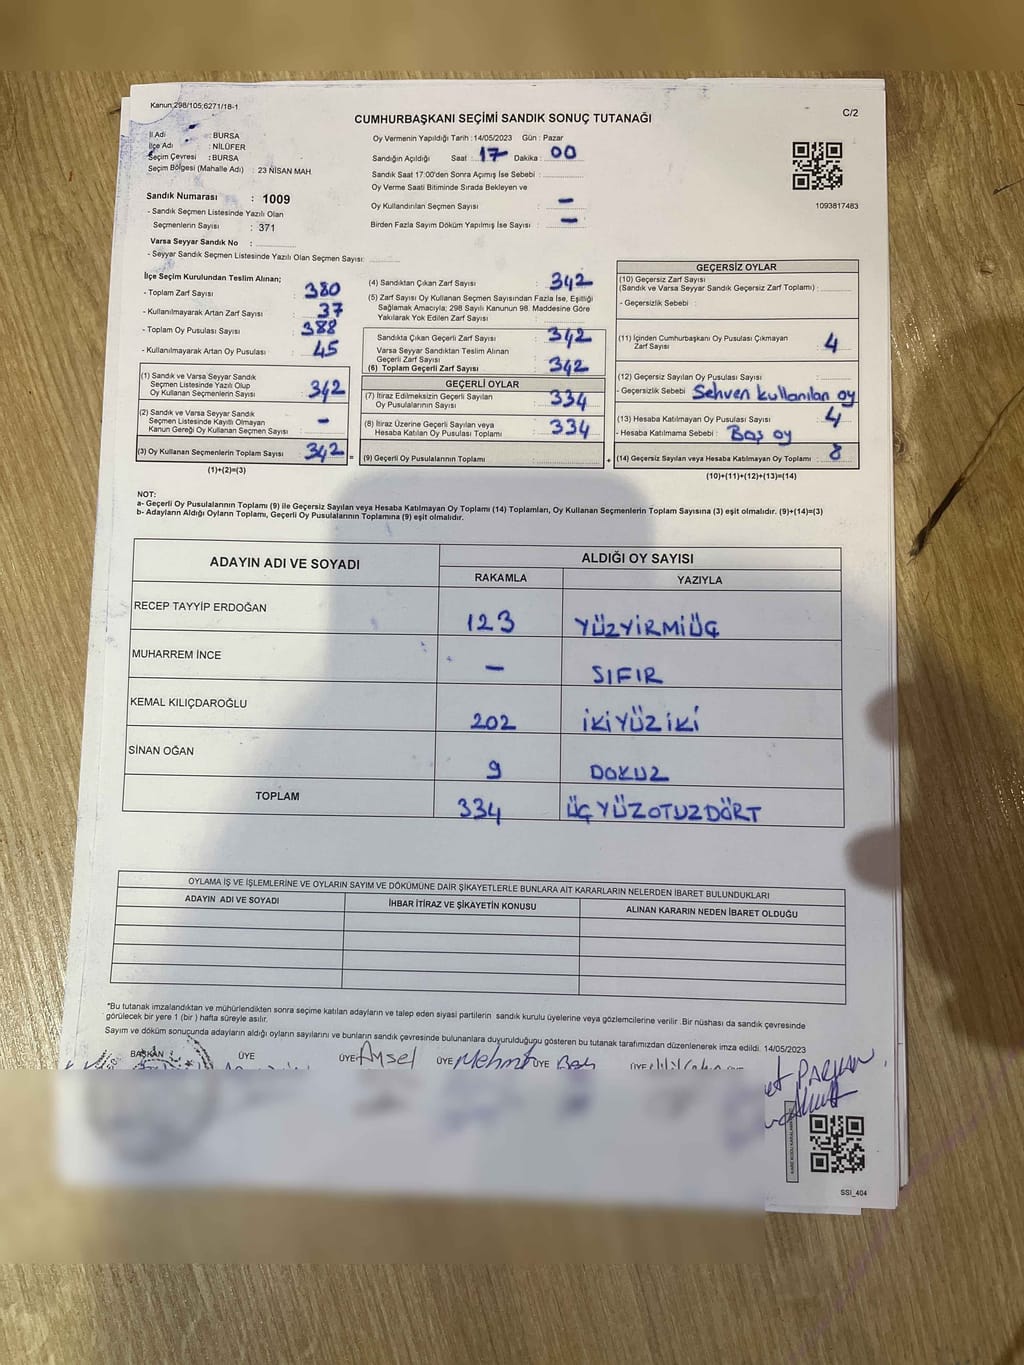 Kanun;298/105;6271/18-1
CUMHURBAŞKANI SEÇİMİ SANDIK SONUÇ TUTANAĞI
C/2
İl Adı : BURSA
İlçe Adı : NİLÜFER
Seçim Çevresi : BURSA
Seçim Bölgesi (Mahalle Adı) : 23 NİSAN MAH.
Oy Vermenin Yapıldığı Tarih : 14/05/2023 Gün : Pazar
Sandığın Açıldığı Saat : 17 Dakika : 00
Sandık Saat 17:00'den Sonra Açımış İse Sebebi :
Oy Verme Saati Bitiminde Sırada Bekleyen ve
Oy Kullandırılan Seçmen Sayısı : –
Birden Fazla Sayım Döküm Yapılmış İse Sayısı : –
1093817483
Sandık Numarası : 1009
- Sandık Seçmen Listesinde Yazılı Olan
Seçmenlerin Sayısı : 371
Varsa Seyyar Sandık No :
- Seyyar Sandık Seçmen Listesinde Yazılı Olan Seçmen Sayısı:
İlçe Seçim Kurulundan Teslim Alınan:
- Toplam Zarf Sayısı : 380
- Kullanılmayarak Artan Zarf Sayısı : 37
- Toplam Oy Pusulası Sayısı : 388
- Kullanılmayarak Artan Oy Pusulası : 45
(1) Sandık ve Varsa Seyyar Sandık
Seçmen Listesinde Yazılı Olup
Oy Kullanan Seçmenlerin Sayısı : 342
(2) Sandık ve Varsa Seyyar Sandık
Seçmen Listesinde Kayıtlı Olmayan
Kanun Gereği Oy Kullanan Seçmen Sayısı : –
(3) Oy Kullanan Seçmenlerin Toplam Sayısı : 342 =
(1)+(2)=(3)
(4) Sandıktan Çıkan Zarf Sayısı : 342
(5) Zarf Sayısı Oy Kullanan Seçmen Sayısından Fazla İse, Eşitliği
Sağlamak Amacıyla; 298 Sayılı Kanunun 98. Maddesine Göre
Yakılarak Yok Edilen Zarf Sayısı :
Sandıkta Çıkan Geçerli Zarf Sayısı : 342
Varsa Seyyar Sandıktan Teslim Alınan
Geçerli Zarf Sayısı :
(6) Toplam Geçerli Zarf Sayısı : 342
GEÇERLİ OYLAR
(7) İtiraz Edilmeksizin Geçerli Sayılan
Oy Pusulalarının Sayısı : 334
(8) İtiraz Üzerine Geçerli Sayılan veya
Hesaba Katılan Oy Pusulası Toplamı : 334
(9) Geçerli Oy Pusulalarının Toplamı : +
GEÇERSİZ OYLAR
(10) Geçersiz Zarf Sayısı
(Sandık ve Varsa Seyyar Sandık Geçersiz Zarf Toplamı) :
- Geçersizlik Sebebi :
(11) İçinden Cumhurbaşkanı Oy Pusulası Çıkmayan
Zarf Sayısı : 4
(12) Geçersiz Sayılan Oy Pusulası Sayısı :
- Geçersizlik Sebebi : Sehven kullanılan oy
(13) Hesaba Katılmayan Oy Pusulası Sayısı : 4
- Hesaba Katılmama Sebebi : Boş oy
(14) Geçersiz Sayılan veya Hesaba Katılmayan Oy Toplamı : 8
(10)+(11)+(12)+(13)=(14)
NOT:
a- Geçerli Oy Pusulalarının Toplamı (9) ile Geçersiz Sayılan veya Hesaba Katılmayan Oy Toplamı (14) Toplamları, Oy Kullanan Seçmenlerin Toplam Sayısına (3) eşit olmalıdır. (9)+(14)=(3)
b- Adayların Aldığı Oyların Toplamı, Geçerli Oy Pusulalarının Toplamına (9) eşit olmalıdır.
ADAYIN ADI VE SOYADI
ALDIĞI OY SAYISI
RAKAMLA YAZIYLA
RECEP TAYYİP ERDOĞAN 123 YÜZYİRMİÜÇ
MUHARREM İNCE – SIFIR
KEMAL KILIÇDAROĞLU 202 İKİYÜZİKİ
SİNAN OĞAN 9 DOKUZ
TOPLAM 334 ÜÇYÜZOTUZDÖRT
OYLAMA İŞ VE İŞLEMLERİNE VE OYLARIN SAYIM VE DÖKÜMÜNE DAİR ŞİKAYETLERLE BUNLARA AİT KARARLARIN NELERDEN İBARET BULUNDUKLARI
ADAYIN ADI VE SOYADI İHBAR İTİRAZ VE ŞİKAYETİN KONUSU ALINAN KARARIN NEDEN İBARET OLDUĞU
*Bu tutanak imzalandıktan ve mühürlendikten sonra seçime katılan adayların ve talep eden siyasi partilerin sandık kurulu üyelerine veya gözlemcilerine verilir .Bir nüshası da sandık çevresinde
görülecek bir yere 1 (bir ) hafta süreyle asılır.
Sayım ve döküm sonucunda adayların aldığı oyların sayılarını ve bunların sandık çevresinde bulunanlara duyurulduğunu gösteren bu tutanak tarafımızdan düzenlenerek imza edildi. 14/05/2023
BAŞKAN ÜYE ÜYE Aysel ÜYE Mehmet ÜYE ÜYE
SSİ_404